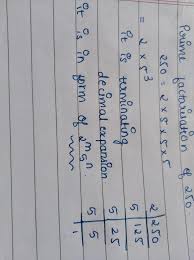 Prime factorisation of 250
250 = 2 x 5 x 5 x 5
= 2 x 5³
it is terminating
decimal expansion
it is in form of 2ᵐ5ⁿ.
2 | 250
5 | 125
5 | 25
5 | 5
1